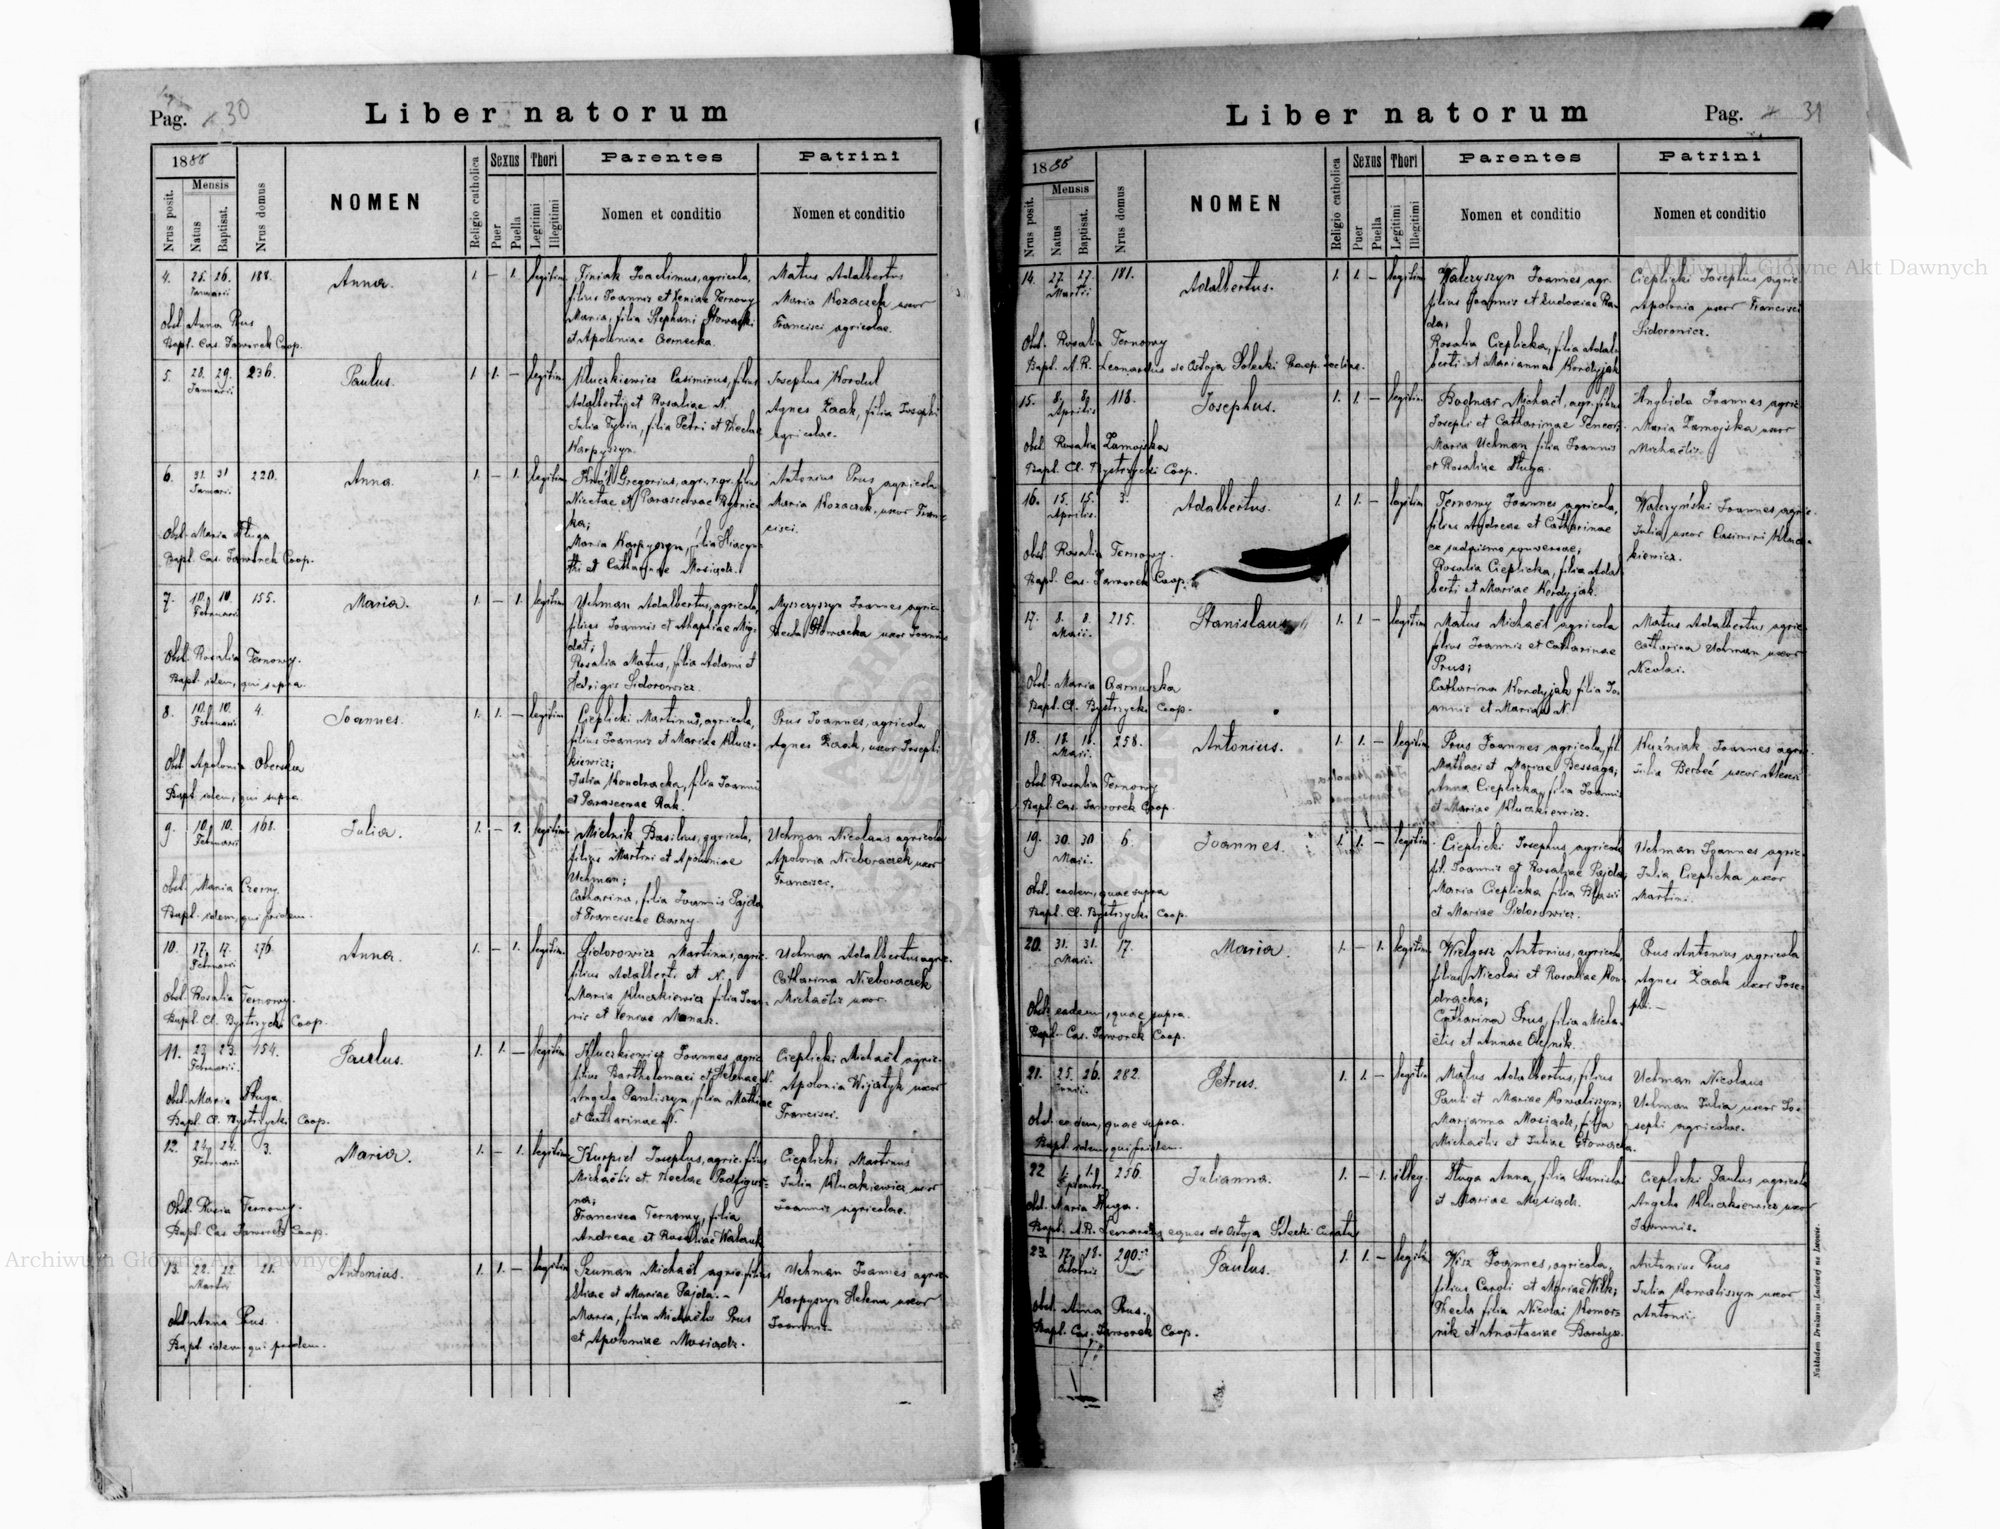 Pag. 30
Liber natorum
1888
Nrus posit.
Mensis
Natus
Baptisat.
Nrus domus
NOMEN
Religio catholica
Sexus
Puer
Puella
Thori
Legitimi
Illegitimi
Parentes
Nomen et conditio
Patrini
Nomen et conditio
4. 25. 26. 188. Anna. 1. — 1. legitim.
Januarii
Obst. Anna Prus
Bapt. Cas. Jaworek Coop.
Joachimus, agricola,
filius Joannis et Xeniae Ternowy
Maria, filia Stephani Głowacki
et Apoloniae
Matus Adalbertus
Maria Kozaczek uxor
Francisci agricolae.
5. 28. 29. 236. Paulus. 1. 1. — legitim.
Januarii
Kluczkiewicz Casimirus, filius
Adalberti et Rosaliae N.
Julia Tybin, filia Petri et Theclae
Karpyszyn.
Josephus Kordul
Agnes Żaak, filia Josephi
agricolae.
6. 31. 31 220. Anna. 1. — 1. legitim.
Januari.
Obst. Maria Długa
Bapt. Cas. Jaworek Coop.
Król Gregorius, agr. r. gr. filius
Nicetae et Parascevae
ka;
Maria Karpyszyn, filia Hiacyn-
thi et Catharinae Mosiądz.
Antonius Prus agricola
Maria Kozaczek, uxor Fran-
cisci.
7. 10. 10. 155. Maria. 1. — 1. legitim
Februarii
Obst. Rosalia Ternowy.
Bapt. idem, qui supra.
Uchman Adalbertus, agricola,
filius Joannis et Ahaphiae Mig-
dał;
Rosalia Matus, filia Adami et
Hedvigis Sidorowicz.
Joannes agric.
Thecla Głowacka uxor Joannis
8. 10. 10. 4. Joannes. 1. 1. — legitim
Februarii
Obst. Apolonia
Bapt. idem, qui supra.
Cieplicki Martinus, agricola,
filius Joannis et Mariae Klucz-
kiewicz;
Julia Kondracka, filia Joannis
et Parascevae Rak.
Prus Joannes, agricola
Agnes Żaak, uxor Josephi
9. 10. 10. 168. Julia. 1. — 1. legitim
Februarii
Obst. Maria Czerny
Bapt. idem, qui pridem.
Mielnik Basilius, agricola,
filius Martini et Apoloniae
Uchman;
Catharina, filia Joannis Pajda
et Franciscae Czarny.
Uchman Nicolaus agricola
Apolonia Nieboraczek uxor
Francisci.
10. 17. 17. 276. Anna. 1. — 1. legitim.
Februarii
Obst. Rosalia Ternowy.
Bapt. Cl. Bystrzycki Coop.
Sidorowicz Martinus, agric.
filius Adalberti et N.
Maria Kluczkiewicz filia Joan-
nis et
Uchman Adalbertus agric.
Catharina Nieboraczek
Michaëlis uxor.
11. 23. 23. 154. Paulus. 1. 1. — legitim.
Februarii.
Obst. Maria Długa.
Bapt. Cl. Bystrzycki Coop.
Kluczkiewicz Joannes agric.
filius Bartholomaei et Helenae N.
Angela Pawliszyn, filia Mathiae
et Catharinae N.
Cieplicki Michaël agric.
Apolonia Wijatyk uxor
Francisci.
12. 24. 24. 3. Maria. 1. — 1. legitim
Februari
Obst. Rosia Ternowy.
Bapt. Cas. Jaworek Coop.
Kurpiel Josephus, agric. filius
Michaëlis et Theclae
na;
Francisca Ternowy, filia
Andreae et Rosaliae
Cieplicki Martinus
Julia Kluczkiewicz uxor
Joannis agricolae.
13. 22. 22. 21. Antonius. 1. 1. — legitim
Martii
Obst. Anna Prus.
Bapt. idem qui pridem.
Szuman Michaël agric. filius
Eliae et Mariae Pajda.—
Maria, filia Michaëlis Prus
et Apoloniae Mosiądz.
Uchman Joannes agric.
Karpyszyn Helena uxor
Joannis.
Liber natorum
Pag. 31
1888
Nrus posit.
Mensis
Natus
Baptisat.
Nrus domus
NOMEN
Religio catholica
Sexus
Puer
Puella
Thori
Legitimi
Illegitimi
Parentes
Nomen et conditio
Patrini
Nomen et conditio
14. 27. 27. 181. Adalbertus. 1. 1. — legitim
Martii
Obst. Rosalia Ternowy
Bapt. A. R. Leonardus de Ostoja Solecki
Waleryszyn Joannes agr.
filius Joannis et Eudoxiae Ra-
da;
Rosalia Cieplicka, filia Adal-
berti et Mariannae Kordyjak
Cieplicki Josephus agric.
Apolonia uxor Francisci
Sidorowicz.
15. 8. 8. 118. Josephus. 1. 1. — legitim
Aprilis
Obst. Rosalia Zamojska
Bapt. Cl. Bystrzycki Coop.
Bodnar Michaël, agr. filius
Josephi et Catharinae
Maria Uchman filia Joannis
et Rosaliae Długa.
Joannes agric.
Maria Zamojska uxor
Michaëlis.
16. 15. 15. 3. Adalbertus. 1. 1. — legitim
Aprilis.
Obst. Rosalia Ternowy.
Bapt. Cas. Jaworek Coop.
Ternowy Joannes agricola,
filius Andreae et Catharinae
ex judaismo conversae;
Rosalia Cieplicka, filia Adal-
berti et Mariae Kordyjak.
Waleryński Joannes, agric.
Julia uxor Casimiri Klucz-
kiewicz.
17. 8. 8. 215. Stanislaus 1. 1 — legitim
Maii.
Obst. Maria Czarnuszka
Bapt. Cl. Bystrzycki Coop.
Matus Michaël agricola
filius Joannis et Catharinae
Prus;
Catharina Kordyjak filia Jo-
annis et Mariae N.
Matus Adalbertus agric.
Catharina Uchman uxor
Nicolai.
18. 18. 18. 258. Antonius. 1. 1. — legitim
Maii.
Obst. Rosalia Ternowy
Bapt. Cas. Jaworek Coop.
Prus Joannes agricola, fil.
Mathaei et Mariae Bessaga;
Anna Cieplicka, filia Joannis
et Mariae Kluczkiewicz.
Kuźniak Joannes agric.
Julia Berbeć uxor Alexii
19. 30. 30 6. Joannes. 1. 1. — legitim
Maii.
Obst. eadem, quae supra
Bapt. Cl. Bystrzycki Coop.
Cieplicki Josephus agricola
fil. Joannis et Rosaliae Pajda;
Maria Cieplicka filia Blasii
et Mariae Sidorowicz.
Uchman Joannes agric.
Julia Cieplicka uxor
Martini.
20. 31. 31. 17. Maria 1. — 1. legitim
Maii.
Obst. eadem, quae supra.
Bapt. Cas. Jaworek Coop.
Wielgosz Antonius, agricola,
filius Nicolai et Rosaliae Kon-
dracka;
Catharina Prus, filia Micha-
ëlis et Annae Olejnik.
Prus Antonius agricola
Agnes Żaak uxor Jose-
phi.—
21. 25. 26. 282. Petrus. 1. 1. — legitim
Junii.
Obst. eadem, quae supra.
Bapt. idem, qui pridem.
Matus Adalbertus, filius
Pauli et Mariae Kowaliszyn;
Marianna Mosiądz, filia
Michaëlis et Juliae Głowacka.
Uchman Nicolaus
Uchman Julia uxor Jo-
sephi agricolae.
22 1. 1. 256. Julianna. 1. — 1. illeg.
Septembr.
Obst. Maria Długa.
Bapt. A. R. Leonardus eques de Ostoja Solecki Curatus
Długa Anna, filia Stanislai
et Mariae Mosiądz.
Cieplicki Paulus agricola
Angela Kluczkiewicz uxor
Joannis.
23. 17. 18. 290. Paulus. 1. 1. — legitim
Octobris
Obst. Anna Prus.
Bapt. Cas. Jaworek Coop.
Wisz Joannes, agricola,
filius Caroli et Mariae Wilk;
Thecla filia Nicolai Komor-
nik et Anastasiae
Antonius Prus
Julia Kowaliszyn uxor
Antonii.
Nakładem Drukarni Ludowej we Lwowie.
Archiwum Główne Akt Dawnych
Archiwum Główne Akt Dawnych